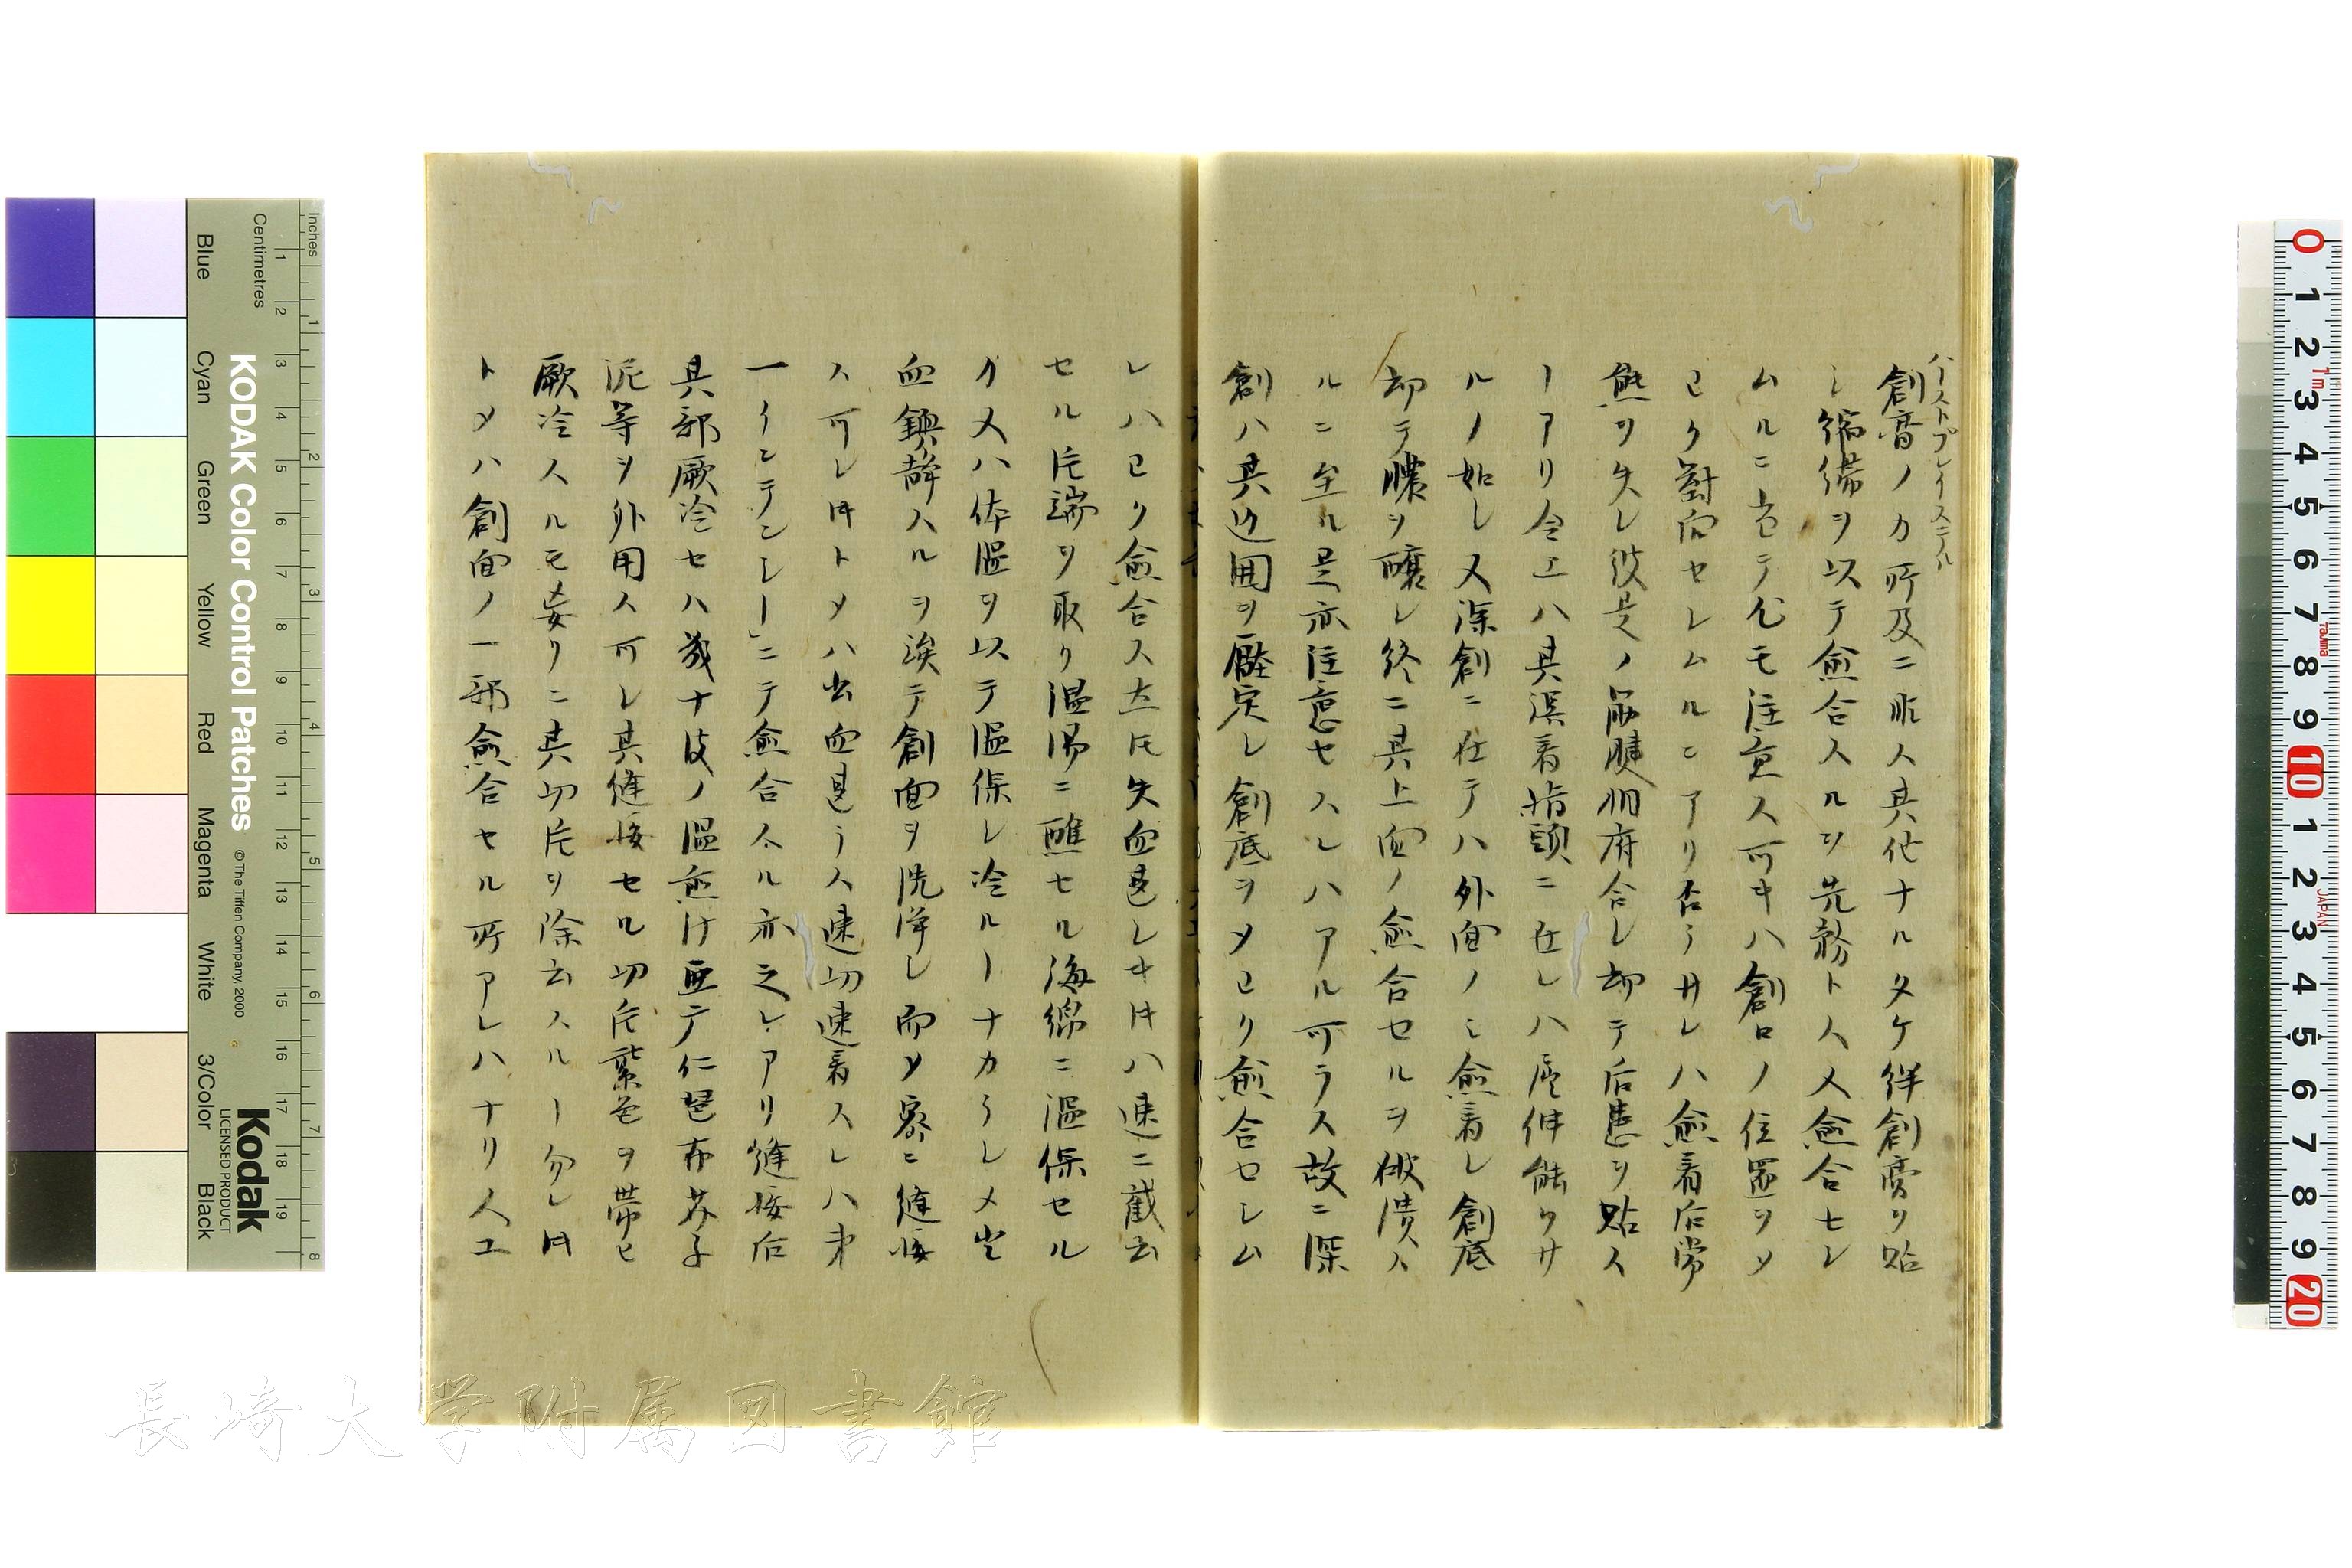 ハーストプレイステル
創膏ノカ所及ニ非ス其他ナルタケ絆創膏ヲ貼
シ繃帯ヲ以テ愈合スルヲ先務トス又愈合セレ
ムルニ当テ尤モ注意ス可キハ創口ノ位置ヲメ
ヨク對向セレムルニアリ否ラサレハ愈着后常
態ヲ失レ彼是ノ筋腱相府合レ却テ后患ヲ貽ス
ーアリ令エハ其誤着指頭ニ在レハ屈伸能ワサ
ルノ如レ又深創ニ在テハ外面ノミ愈着レ創底
却テ膿ヲ醸レ終ニ其上面ノ愈合セルヲ破潰ス
ルニ至ル是亦注意セスレハアル可ラス故ニ深
創ハ其辺囲ヲ壓定レ創底ヲメヨリ愈合セシム
レハヨリ愈合ス左氏失血甚レキ片ハ速ニ截去
セル片端ヲ取リ温湯ニ醮セル海綿ニ温保セル
カ又ハ体温ヲ以テ温保レ冷ルーナカラレメ出
血鎮静スルヲ俟テ創面ヲ洗浄レ而メ密ニ縫接
ス可レ片トメハ出血甚ラス速切速着スレハ第
一インテンシー」ニテ愈合スル亦之レアリ縫接后
其部厥冷セハ幾十度ノ温蒸汁亜テ仁琶布芥子
泥等ヲ外用ス可レ其縫接セル切片紫色ヲ帯ヒ
厥冷スルモ妄リニ其切片ヲ除去スルー勿レ片
トメハ創面ノ一部愈合セル所アレハナリ人工
長崎大学附属図書館
KODAK Color Control Patches
©The Tiffen Company, 2000
Kodak
LICENSED PRODUCT
Inches
Centimetres
Blue
Cyan
Green
Yellow
Red
Magenta
White
3/Color
Black